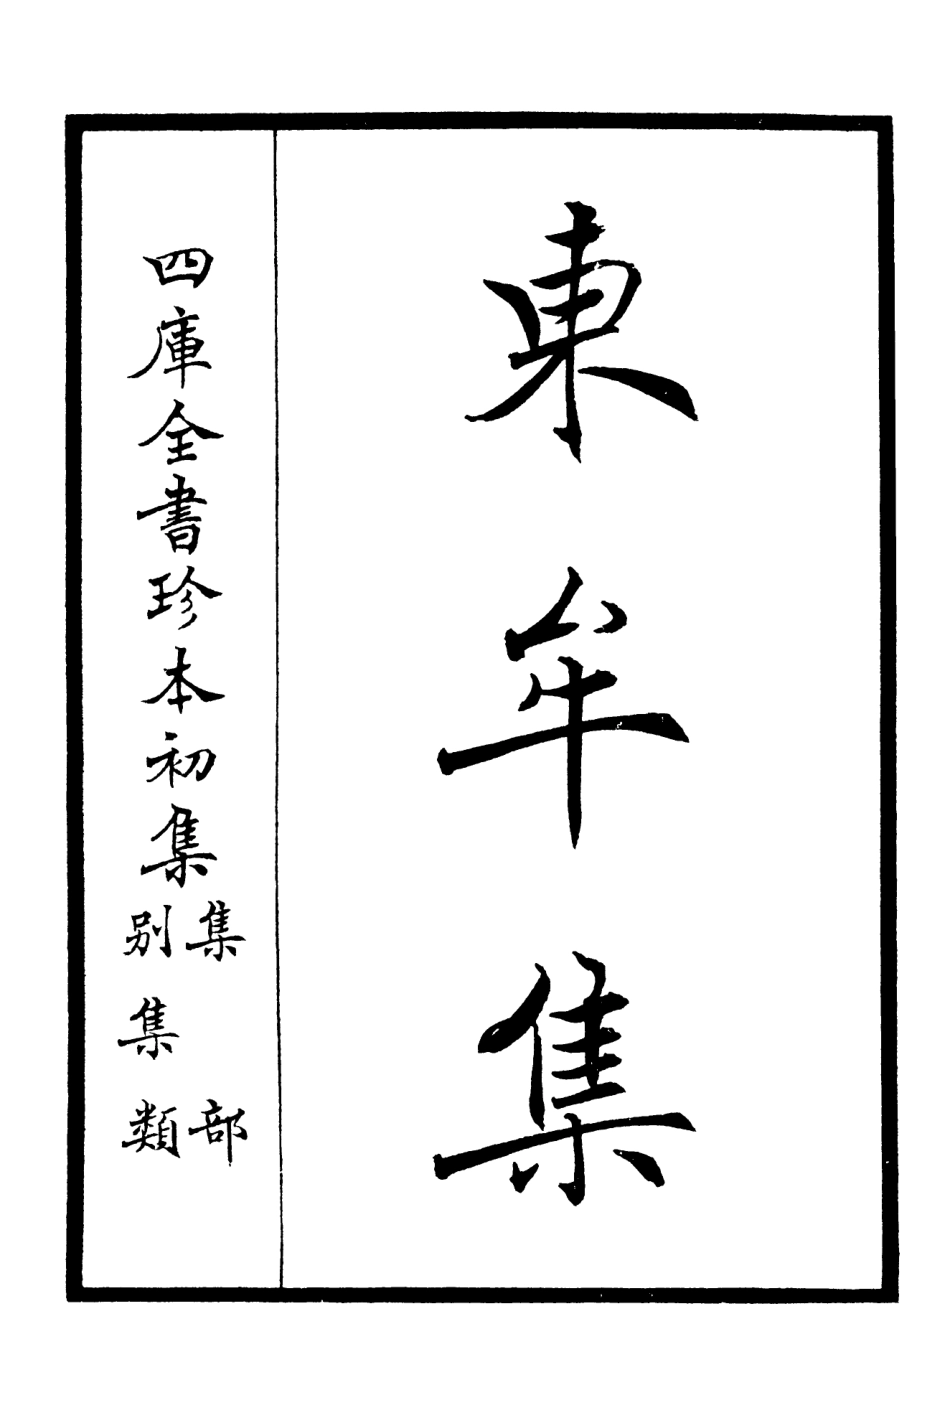 東牟集
四庫全書珍本初集
集部
別集類